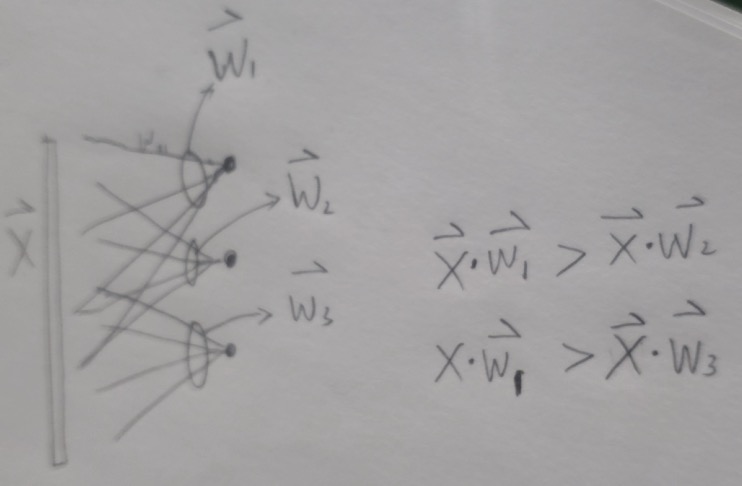 W⃗₁
W⃗₂
X⃗
W⃗₃
X⃗·W⃗₁ > X⃗·W⃗₂
X·W⃗₁ > X⃗·W⃗₃